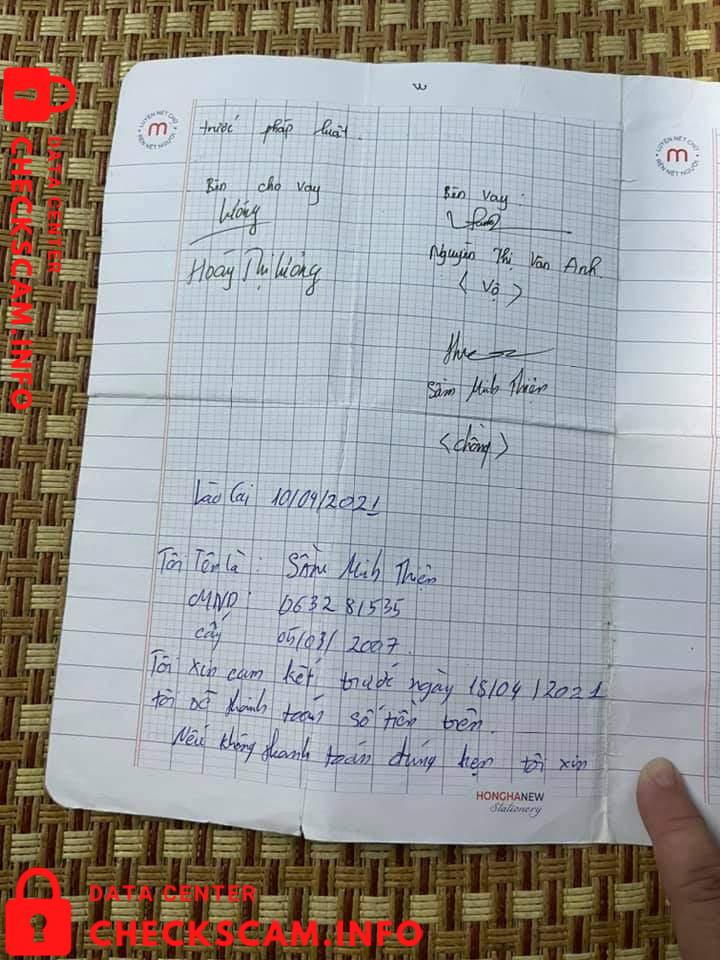 trước pháp luật.
Bên cho vay
Bên vay:
Hoàng Thị Lương
Nguyễn Thị Vân Anh.
< Vợ >
Sầm Minh Thiện
<chồng>
Lào Cai 10/04/2021
Tôi Tên là: Sầm Minh Thiện
CMND: 063281535
cấp 05/03/2007.
Tôi xin cam kết trước ngày 18/04/2021
tôi sẽ thanh toán số tiền trên.
Nếu không thanh toán đúng hẹn tôi xin
HONGHANEW
Stationery
LUYỆN NÉT CHỮ
RÈN NẾT NGƯỜI
m
LUYỆN NÉT CHỮ
RÈN NẾT NGƯỜI
m
DATA CENTER
CHECKSCAM.INFO
DATA CENTER
CHECKSCAM.INFO